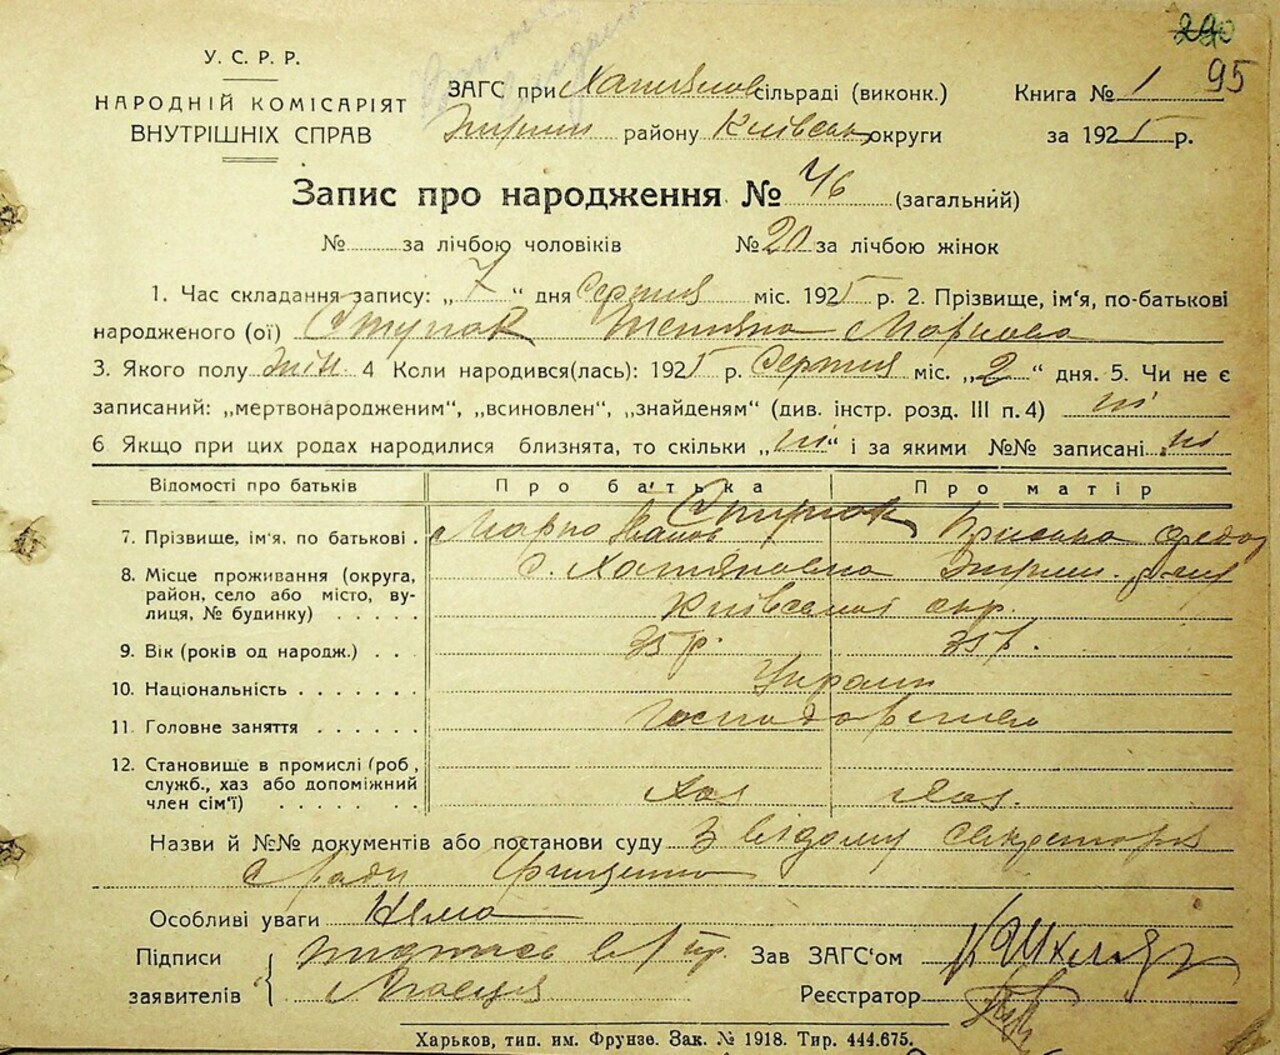 290
95
У. С. Р. Р.
НАРОДНІЙ КОМІСАРІЯТ
ВНУТРІШНІХ СПРАВ
ЗАГС при сільраді (виконк.) Книга № 1
району Київськ округи за 1925 р.
Запис про народження № 46 (загальний)
№ за лічбою чоловіків № 20 за лічбою жінок
1. Час складання запису: „7“ дня Серпня міс. 1925 р. 2. Прізвище, ім'я, по-батькові
народженого (ої) Ступак Тетяна Маркова
3. Якого полу жін. 4 Коли народився(лась): 1925 р. Серпня міс. „2“ дня. 5. Чи не є
записаний: „мертвонародженим“, „всиновлен“, „знайденям“ (див. інстр. розд. III п. 4) ні
6 Якщо при цих родах народилися близнята, то скільки „ні“ і за якими №№ записані ні
Відомості про батьків Про батька Про матір
Ступак
7. Прізвище, ім'я, по батькові . Марко Іванов
8. Місце проживання (округа, с. Хотянівка
район, село або місто, ву-
лиця, № будинку) . . . . . Київської окр.
9. Вік (років од народж.) . . 35 р. 35 р.
10. Національність . . . . . . . Україн
11. Головне заняття . . . . . . Господарство
12. Становище в промислі (роб,
служб., хаз або допоміжний
член сім'ї) . . . . . . . Хаз Хаз.
Назви й №№ документів або постанови суду З відому секретаря
с ради
Особливі уваги Нема
Підписи Зав ЗАГС'ом
заявителів Реєстратор
Харьков, тип. им. Фрунзе. Зак. № 1918. Тир. 444.675.